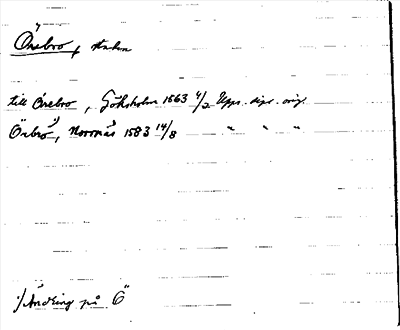 Örebro,
till Örebro, Göksholm 1563 4/2 Upps. dipl. orig.
Örbro, 1) Norrnäs 1583 14/8 " " "
1) Ändring på Ö